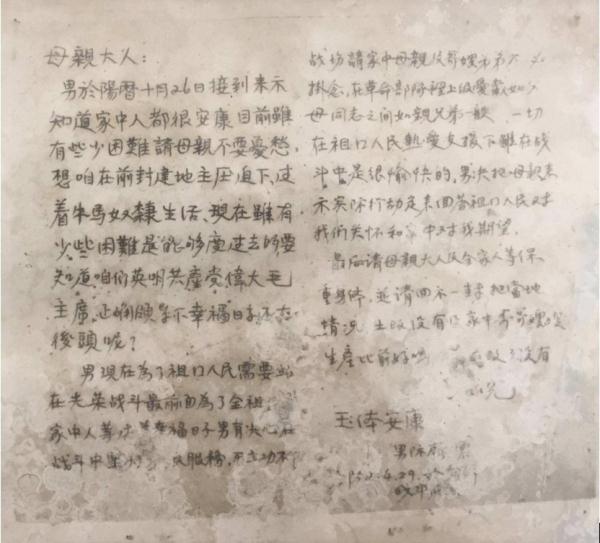 母親大人：
男於陽曆十月26日接到来示
知道家中人都很安康目前雖
有些少困難請母親不要憂愁，
想咱在前封建地主压迫下，过
着牛馬奴隸生活、現在雖有
少些困難是能够度过去的要
知道咱们英明共產党偉大毛
主席、正确領导下幸福日子不在
後頭呢？
男現在為了祖国人民需要站
在光荣战斗最前面為了全祖
家中人等 幸福日子男有决心在
战斗中 服務，不立功不
战场請家中母親及哥嫂弟弟不必
掛念，在革命部隊裡上级愛戴如父
母同志之间如親兄弟一般 一切
在祖国人民熱愛支援下雖在战
斗中是很愉快的，男决把母親来
示实际行动来回答祖国人民对
我们关怀和家中对我期望。
最后请母親大人及全家人等保
重身体，並请回示一封把當地
情况 土改没有 家中哥哥嫂嫂
生産比前好嗎 没有
玉体安康
男陈
1952.4.29.